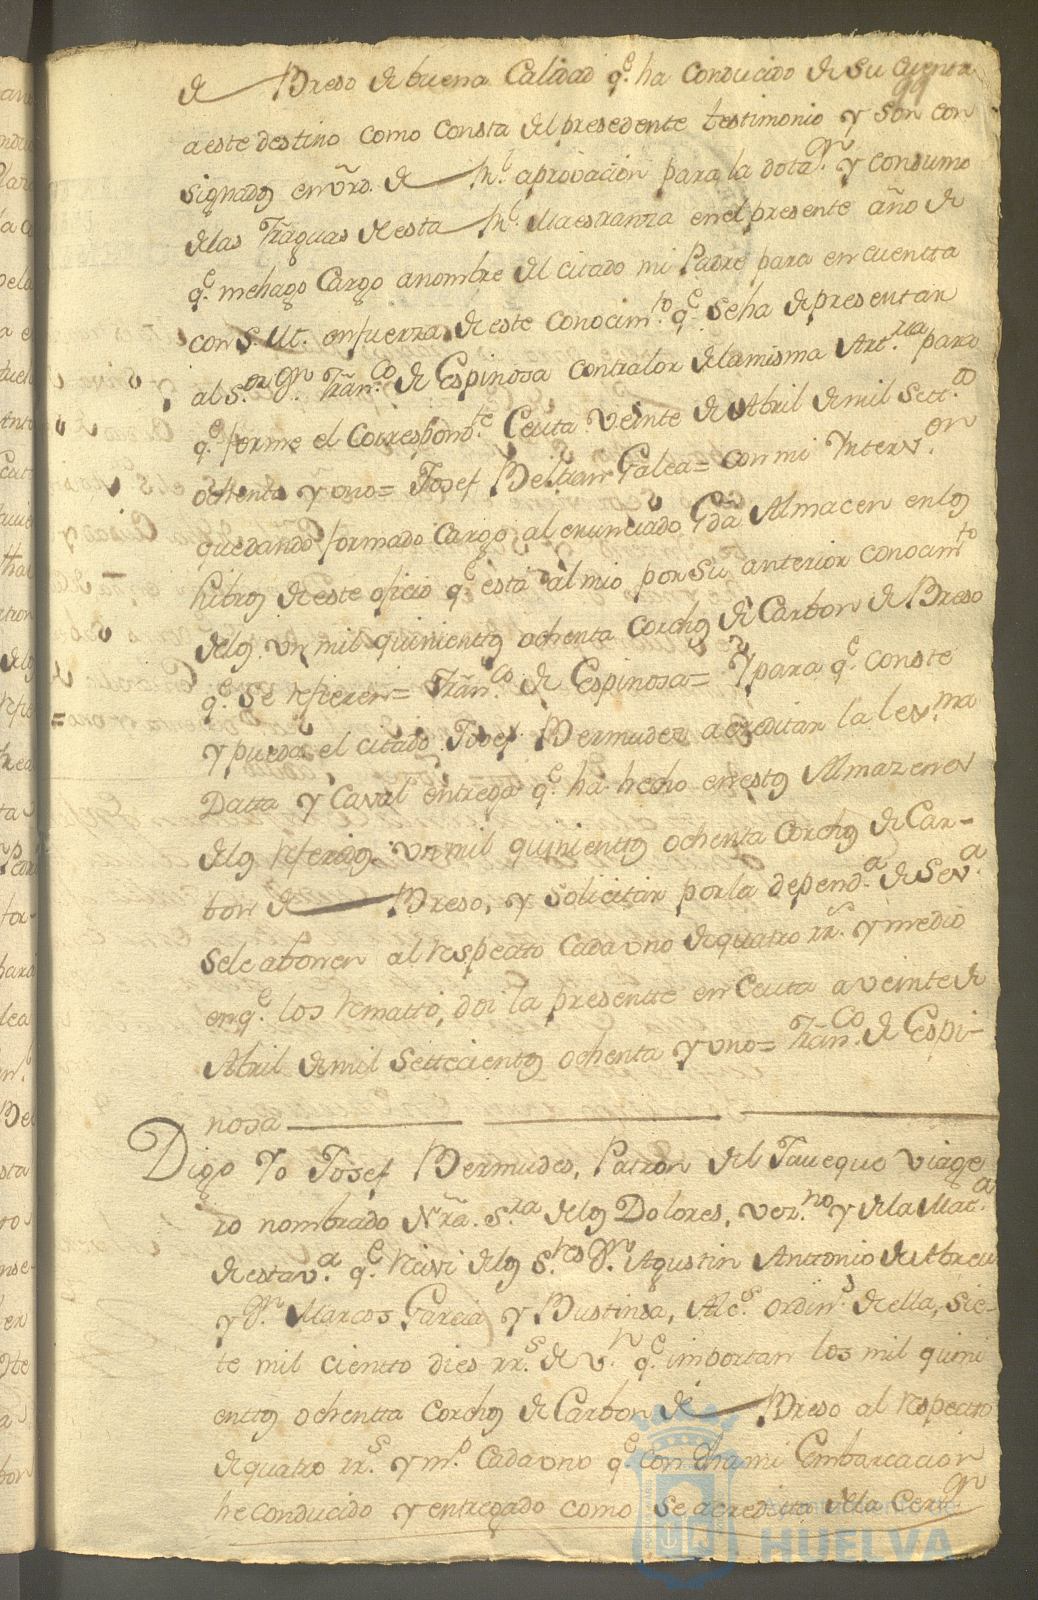 de Breso de buena Calidad q.e ha conducido de su cuenta
a este destino como consta del presedente testimonio y son con
signados en vrd. de R.l aprovacion para la dota.on y consumo
de las fraguas de esta R.l Maestranza en el presente año de
q.e me hago Cargo a nombre del citado mi Padre para en cuentta
con S. M. en fuerza de este conocim.to q.e se ha de presentar
al S.or D.n Fran.co de Espinosa contralor de la misma Art.ria para
q.e forme el correspond.te Ceuta veinte de Abril de mil sett.os
ochenta y uno= Josef Beltran Galea= con mi Yntterv.on
quedando formado cargo al enunciado Gda Almacen en los
libros de este oficio q.e está al mio por su anterior conocim.to
de los un mil quinientos ochenta corchos de Carbon de Breso
q.e se refieren= Fran.co de Espinosa= Y para q.e conste
y pueda el citado Josef Bermudez acreditar la lex.ma
Datta y Caval entrega q.e ha hecho en estos Almazenes
de los referidos un mil quinientos ochenta corchos de Car-
bon de Breso, y solicitar por la depend.a de Sev.a
se le abonen al respecto cada uno de quatro rr.s y medio
en q.e los remattó, doi la presentte en Ceuta a veinte de
Abril de mil settecientos ochenta y uno= Fran.co de Espi-
nosa
Digo Yo Josef Bermudes, Patron del Javeque viage
ro nombrado Nra. S.ra de los Dolores, vez.no y de la Mat.a
de esta v.a q.e recivi de los S.res D.n Agustin Anttonio de Abreu
y D.n Marcos Garcia y Bustinsa, Alc.s ordin.s de ella, sie-
te mil cientto dies rr.s de v.n q.e importan los mil quini
enttos ochentta corchos de Carbon de Breso al respectto
de quatro rr.s y m.o cada uno q.e con dha mi Embarcacion
he conducido y entregado como se acredita de la Cer.on
Ayuntamiento de
HUELVA